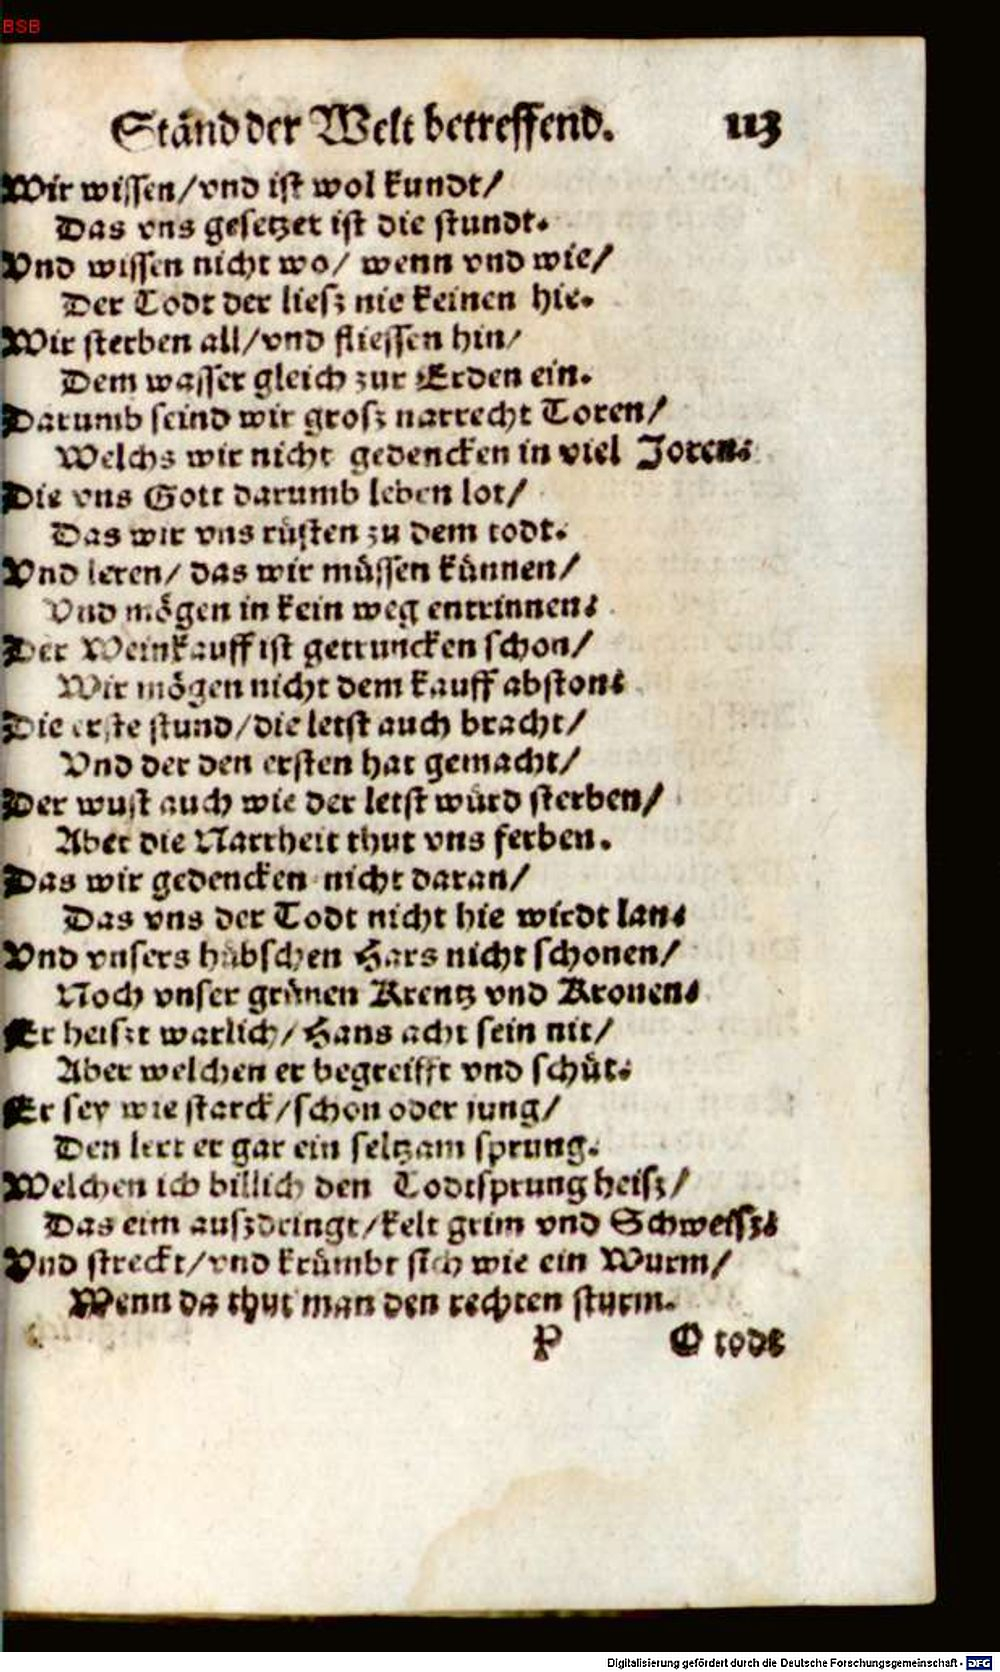 BSB
Ständ der Welt betreffend. 113
Wir wissen/vnd ist wol kundt/
Das vns gesetzet ist die stundt.
Vnd wissen nicht wo/ wenn vnd wie/
Der Todt der liesz nie keinen hie.
Wir sterben all/vnd fliessen hin/
Dem wasser gleich zur Erden ein.
Darumb seind wir grosz narrecht Toren/
Welchs wir nicht gedencken in viel Joren:
Die vns Gott darumb leben lot/
Das wir vns rüsten zu dem todt.
Vnd leren/ das wir müssen künnen/
Vnd mögen in kein weg entrinnen:
Der Weinkauff ist getruncken schon/
Wir mögen nicht dem kauff abston:
Die erste stund/die letst auch bracht/
Vnd der den ersten hat gemacht/
Der wust auch wie der letst würd sterben/
Aber die Narrheit thut vns ferben.
Das wir gedencken nicht daran/
Das vns der Todt nicht hie wirdt lan:
Vnd vnsers hübschen Hars nicht schonen/
Noch vnser grünen Krentz vnd Kronen:
Er heiszt warlich/Hans acht sein nit/
Aber welchen er begreifft vnd schüt:
Er sey wie starck/schon oder jung/
Den lert er gar ein seltzam sprung.
Welchen ich billich den Todtsprung heisz/
Das eim auszdringt/kelt grim vnd Schweisz:
Vnd streckt/vnd krümbt sich wie ein Wurm/
Wenn da thut man den rechten sturm.
P O todt
Digitalisierung gefördert durch die Deutsche Forschungsgemeinschaft - DFG